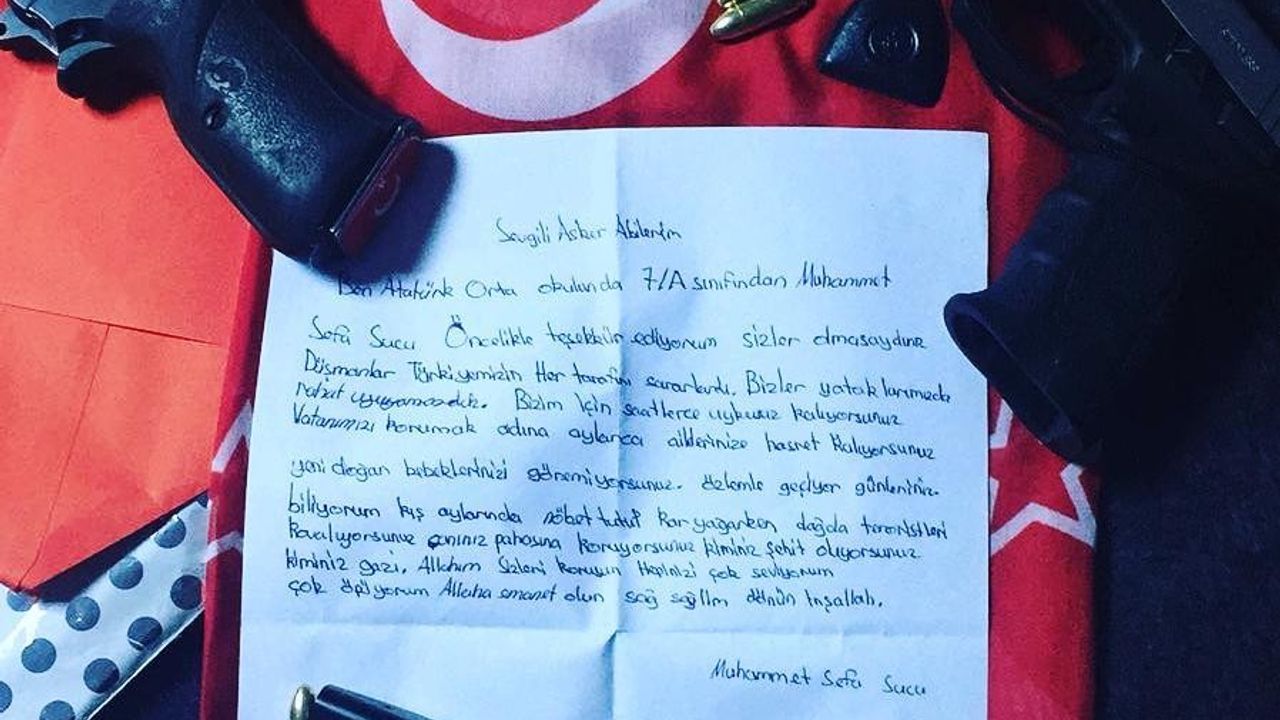 Sevgili Asker Abilerim
Ben Atatürk Orta okulunda 7/A sınıfından Muhammet
Sefa Sucu Öncelikle teşekkür ediyorum sizler olmasaydınız
Düşmanlar Türkiyemizin Her tarafını sararlardı. Bizler yataklarımızda
rahat uyuyamazdık. Bizim için saatlerce uykusuz kalıyorsunuz
Vatanımızı korumak adına aylarca ailelerinize hasret kalıyorsunuz
yeni doğan bebeklerinizi göremiyorsunuz. özlemle geçiyor günleriniz.
biliyorum kış aylarında nöbet tutup kar yağarken dağda teröristleri
kovalıyorsunuz canınız pahasına koruyorsunuz kiminiz şehit oluyorsunuz
kiminiz gazi. Allahım Sizleri korusun Hepinizi çok seviyorum
çok öpüyorum Allaha emanet olun sağ sağlim dönün İnşallah.
Muhammet Sefa Sucu